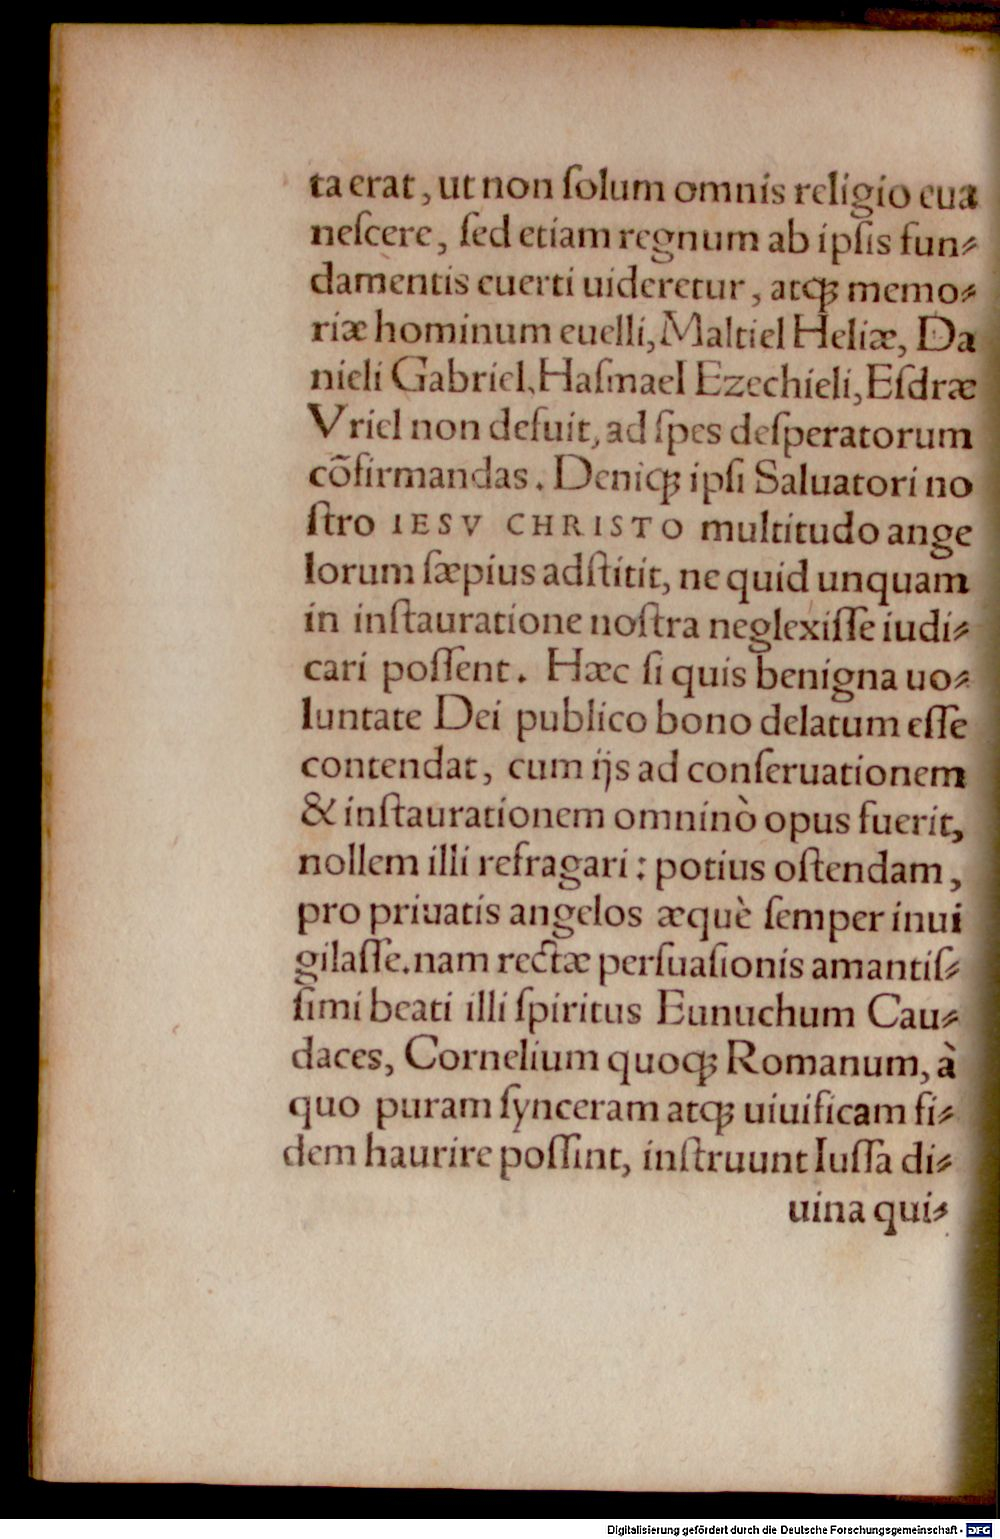 ta erat, ut non ſolum omnis religio eua
neſcere, ſed etiam regnum ab ipſis fun⸗
damentis euerti uideretur, atq́ꝫ memo⸗
riæ hominum euelli, Maltiel Heliæ, Da
nieli Gabriel, Haſmael Ezechieli, Eſdræ
Vriel non defuit, ad ſpes deſperatorum
cõfirmandas. Deniqꝫ ipſi Saluatori no
ſtro IESV CHRISTO multitudo ange
lorum ſæpius adſtitit, ne quid unquam
in inſtauratione noſtra neglexiſſe iudi⸗
cari poſſent. Hæc ſi quis benigna uo⸗
luntate Dei publico bono delatum eſſe
contendat, cum ijs ad conſeruationem
& inſtaurationem omninò opus fuerit,
nollem illi refragari: potius oſtendam,
pro priuatis angelos æquè ſemper inui
gilaſſe. nam rectæ perſuaſionis amantiſ⸗
ſimi beati illi ſpiritus Eunuchum Cau⸗
daces, Cornelium quoqꝫ Romanum, à
quo puram ſynceram atqꝫ uiuificam fi⸗
dem haurire poſſint, inſtruunt Iuſſa di⸗
uina qui⸗
Digitalisierung gefördert durch die Deutsche Forschungsgemeinschaft - DFG